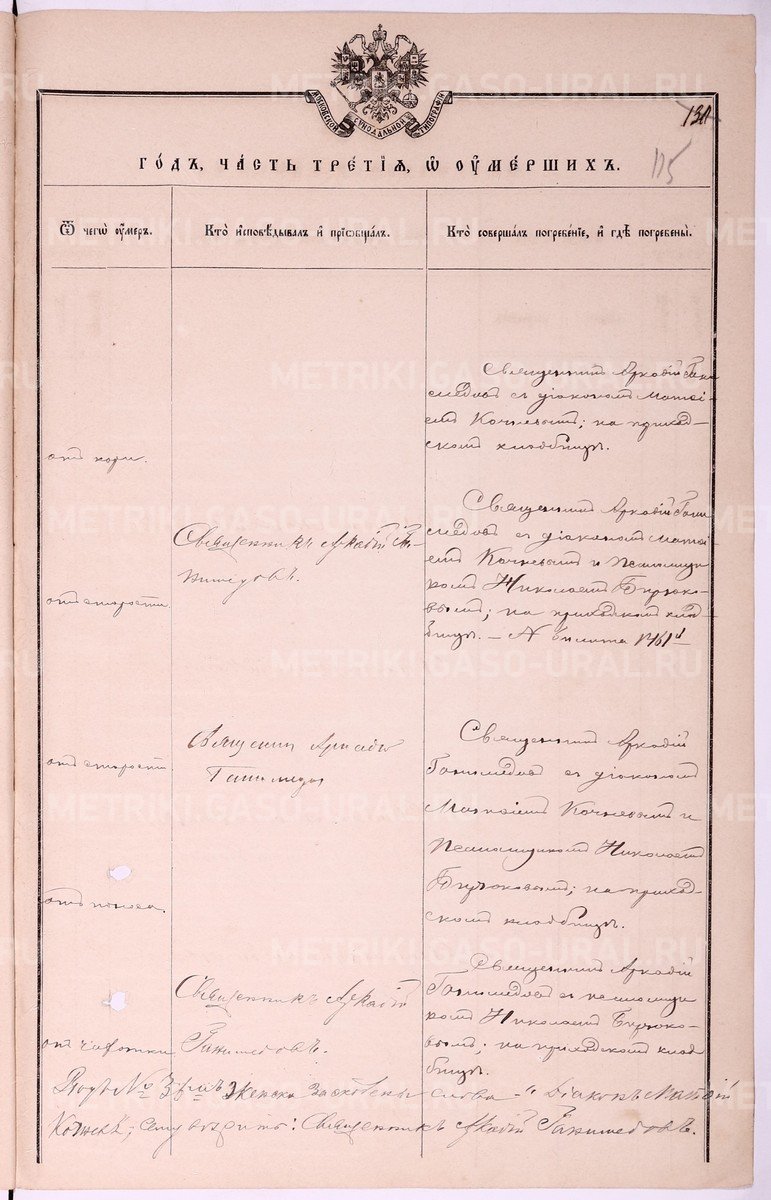 МОСКОВСКОЙ СѴНОДАЛЬНОЙ ТИПОГРАФІИ
131
115
ГО́ДЪ, ЧА́СТЬ ТРЕ́ТІЯ, Ѡ҆ ОУ҆МЕ́РШИХЪ.
Ѿ чегѡ̀ оу҆́меръ.
Кто̀ и҆сповѣ́дывалъ и҆ прїѡбща́лъ.
Кто̀ соверша́лъ погребе́нїе, и҆ гдѣ̀ погребены̀.
Священникъ Аркадій Гани
медовъ съ діакономъ Матѳі
емъ Кочневымъ; на приход-
скомъ кладбищѣ.
отъ кори.
Священникъ Аркадій Га-
нимедовъ.
отъ старости
Священникъ Аркадій Гани
медовъ съ діакономъ Матѳі
емъ Кочневымъ и псаломщи
комъ Николаемъ Бирюко-
вымъ; на приходскомъ клад
бищѣ. — № билета 1461
отъ старости
Священникъ Аркадій
Ганимедовъ
Священникъ Аркадій
Ганимедовъ съ діакономъ
Матѳіемъ Кочневымъ и
псаломщикомъ Николаемъ
Бирюковымъ; на приход-
скомъ кладбищѣ.
отъ поноса.
отъ чахотки
Священникъ Аркадій
Ганимедовъ.
Священникъ Аркадій
Ганимедовъ съ псаломщи
комъ Николаемъ Бирюко-
вымъ; на приходскомъ клад
бищѣ.
Подъ № 3 женска слова — "Діаконъ Матѳій
Кочневъ; вѣритъ: Священникъ Аркадій Ганимедовъ.
METRIKI.GASO-URAL.RU